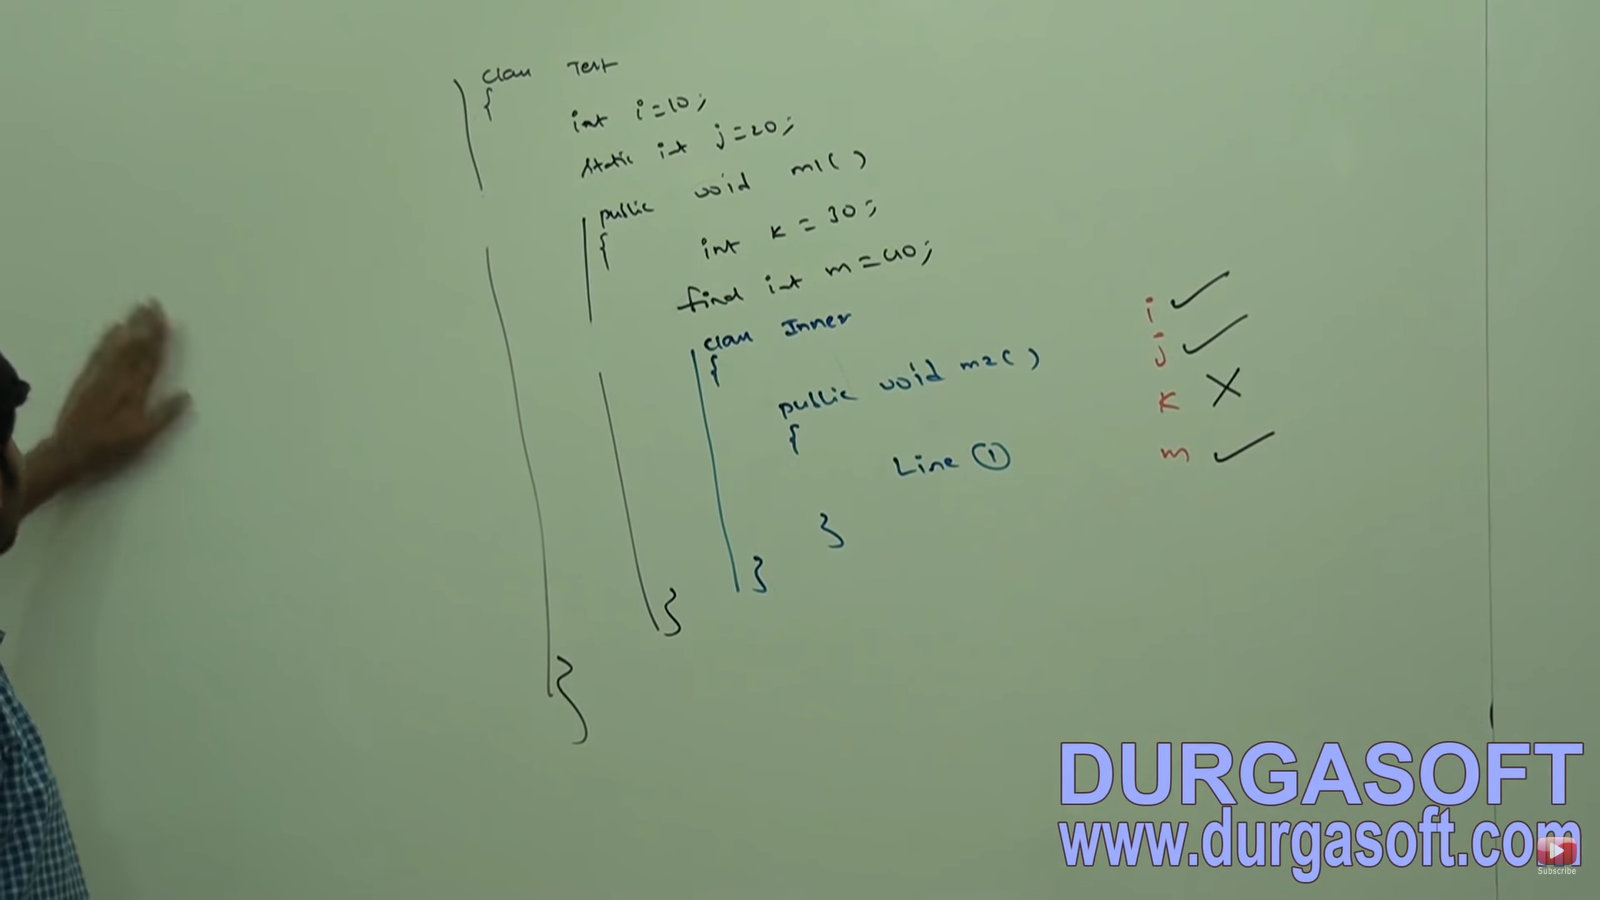 class Test
{
int i=10;
static int j=20;
public void m1( )
{
int k = 30;
final int m=40;
class Inner
{
public void m2( )
{
Line ①
}
}
}
}
i ✓
j ✓
k ✗
m ✓
DURGASOFT
www.durgasoft.com
Subscribe